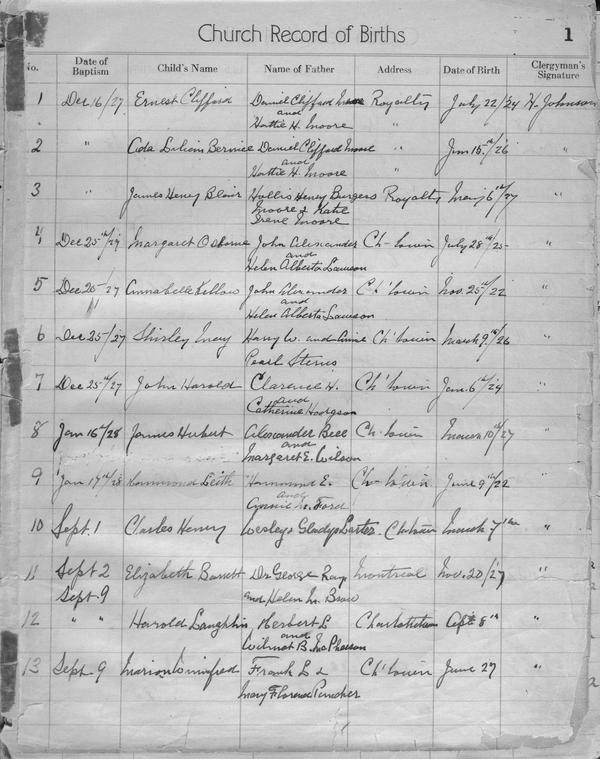 Church Record of Births 1
No. Date of Baptism Child's Name Name of Father Address Date of Birth Clergyman's Signature
1 Dec 16/27 Ernest Clifford Daniel Clifford Moore Royalty July 22/24 H. Johnson
and
Hattie H. Moore "
2 " Ada Lilian Bernice Daniel Clifford Moore " Jan 15th/26 "
and
Hattie H. Moore "
3 " James Henry Blair Hollis Henry Burgers Royalty May 6th/27 "
Moore & Katie
Irene Moore
4 Dec 25th/27 Margaret Osborne John Alexander Ch-town July 28th/25 "
and
Helen Alberta Lawson
5 Dec 25/27 Annabelle John Alexander Ch'town Nov. 25th/22 "
and
Helen Alberta Lawson
6 Dec 25/27 Shirley May Harry W. and Annie Ch'town March 9th/26 "
Pearl Sterns
7 Dec 25th/27 John Harold Clarence H. Ch'town Jan. 6th/24 "
and
Catherine Hodgson
8 Jan 16th/28 James Hubert Alexander Bell Ch-town March 10th/27 "
and
Margaret E. Wilson
9 Jan 17th/28 Hammond Leith Hammond E. Ch-town June 9th/22 "
and
M. Ford
10 Sept. 1 Charles Henry Wesley & Gladys Carter Ch-town March 7th "
11 Sept 2 Elizabeth Barrett Dr George Ray Montreal Nov. 20/27 "
Sept. 9 and Helen M.
12 " " Harold Laughlin Herbert L Charlottetown Apl 8th "
and
Wilmot B. McPherson
13 Sept. 9 Marion Winnifred Frank L & Ch'town June 27 "
Mary Florence